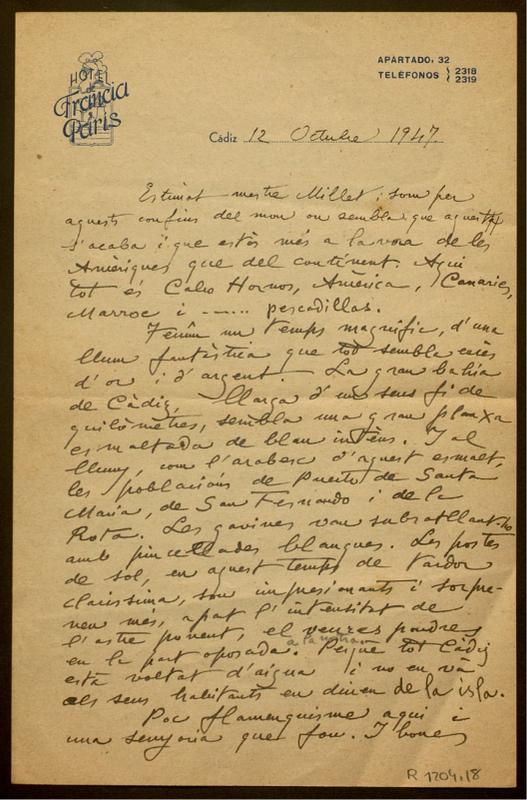 HOTEL
de
Francia
y
Paris
APARTADO, 32
TELÉFONOS } 2318
2319
Cádiz 12 Octubre 1947.
Estimat mestre Millet: som per
aquests confins del mon on sembla que aquest
s'acaba i que estàs més a la vora de les
Amèriques que del continent. Aquí
tot és Cabo Hornos, Amèrica, Canaries,
Marroc i ...... pescadillas.
Fenim un temps magnífic, d'una
llum fantàstica que tot sembla
d'or i d'argent. La gran bahía
de Càdiç, llarga d'uns seus fi de
quilòmetres, sembla una gran planxa
esmaltada de blau intens. I al
lluny, com l'arabesc d'aquest esmalt,
les poblacions de Puerto de Santa
Maria, de San Fernando i de la
Rota. Les gavines van subratllant-ho
amb pincellades blanques. Les postes
de sol, en aquest temps de tardor
claríssima, son impresionants i sorpre-
nen més, apart l'intensitat de
l'astre ponent, el veures pondre
en la part oposada. a la nostra Perque tot Cádiz
està voltat d'aigua i no en và
els seus habitants en diuen de la isla.
Poc flamenquisme aqui i
una senyoria que fou. I bones
R 1204,18